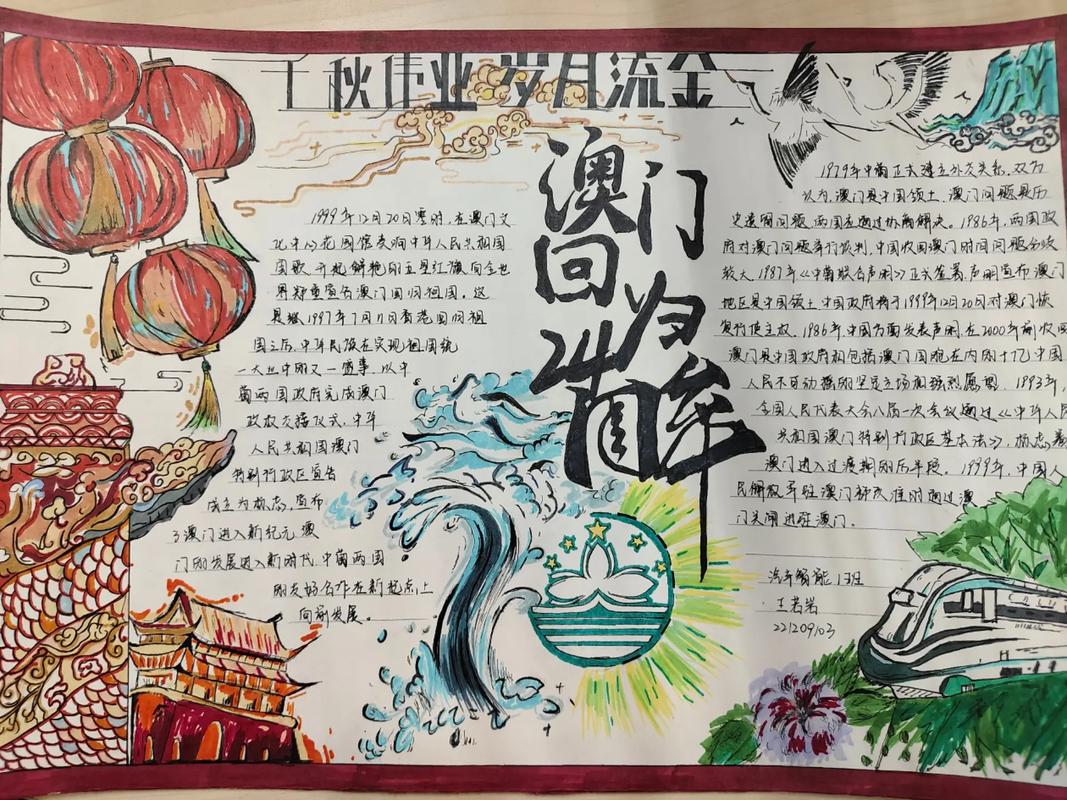 千秋伟业 岁月流金
澳门
回归
回眸
1999年12月20日零时,在澳门文
化中心花园馆奏响中华人民共和国
国歌 升起鲜艳的五星红旗向全世
界郑重宣告澳门回归祖国。这
是继1997年7月1日香港回归祖
国之后,中华民族在实现祖国统
一大业中的又一盛事,以中
葡两国政府完成澳门
政权交接仪式,中华
人民共和国澳门
特别行政区宣告
成立为标志,宣布
了澳门进入新纪元 澳
门的发展进入新时代,中葡两国
的友好合作在新起点上
向前发展。
1979年中葡正式建立外交关系,双方
认为,澳门是中国领土,澳门问题是历
史遗留问题,两国在通过协商解决。1986年,两国政
府对澳门问题举行谈判,中国收回澳门时间问题分歧
较大,1987年《中葡联合声明》正式签署,声明宣布澳门
地区是中国领土 中国政府将于1999年12月20日对澳门恢
复行使主权,1986年,中国方面发表声明,在2000年前收回
澳门是中国政府和包括澳门同胞在内的十亿中国
人民不可动摇的坚定立场和强烈愿望,1993年,
全国人民代表大会八届一次会议通过《中华人民
共和国澳门特别行政区基本法》,标志着
澳门进入过渡期的后半段。1999年,中国人
民解放军驻澳门部队准时通过澳
门关闸进驻澳门。
汽车智能1班
王若岩
22120903